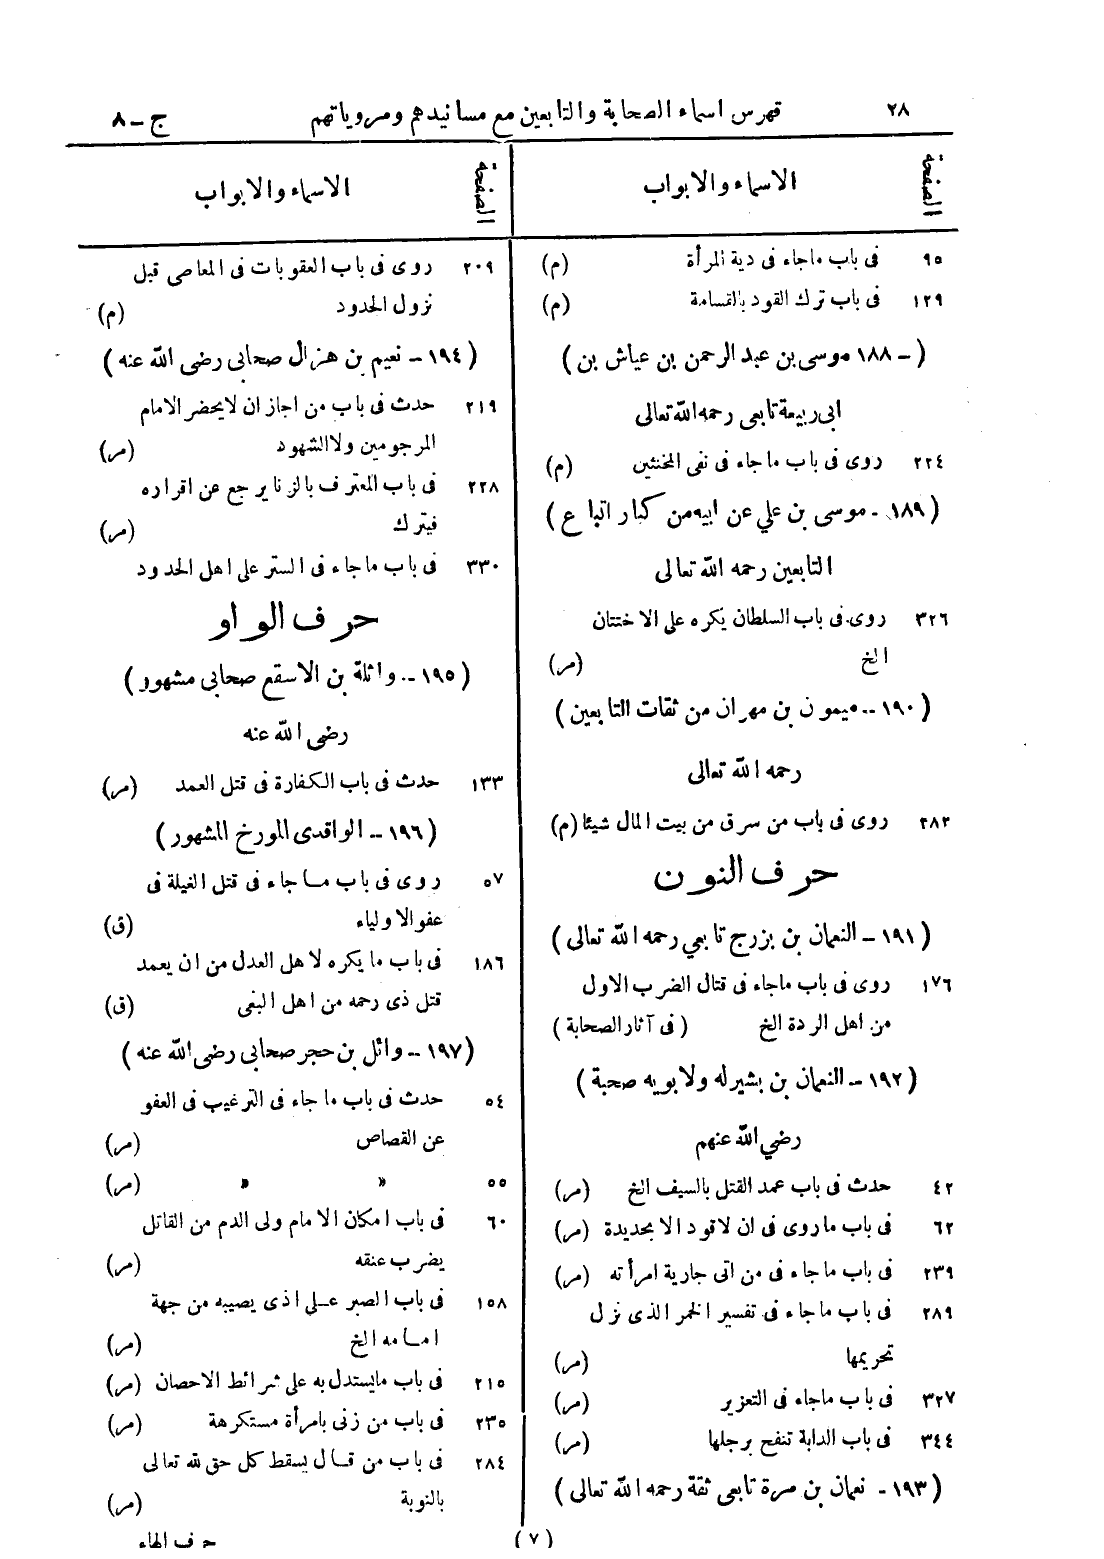 ٢٨ فهرس اسماء الصحابة والتابعين مع مسانيدهم ومروياتهم ج - ٨
الصفحة الاسماء والابواب
٩٥ فى باب ماجاء فى دية المرأة (م)
١٢٩ فى باب ترك القود بالقسامة (م)
( ١٨٨ - موسى بن عبد الرحمن بن عياش بن )
ابى ربيعة تابعى رحمه الله تعالى
٢٢٤ روى فى باب ماجاء فى نفى المخنثين (م)
( ١٨٩ - موسى بن علي عن ابيه من كبار اتباع )
التابعين رحمه الله تعالى
٣٢٦ روى فى باب السلطان يكره على الاختتان
الخ (مر)
( ١٩٠ - ميمون بن مهران من ثقات التابعين )
رحمه الله تعالى
٢٨٢ روى فى باب من سرق من بيت المال شيئا (م)
حرف النون
( ١٩١ - النعمان بن بزرج تابعي رحمه الله تعالى )
١٧٦ روى فى باب ماجاء فى قتال الضرب الاول
من اهل الردة الخ ( فى آثار الصحابة )
( ١٩٢ - النعمان بن بشير له ولابويه صحبة )
رضي الله عنهم
٤٢ حدث فى باب عمد القتل بالسيف الخ (مر)
٦٢ فى باب ماروى فى ان لاقود الا بحديدة (مر)
٢٣٩ فى باب ماجاء فى من اتى جارية امرأته (مر)
٢٨٩ فى باب ماجاء فى تفسير الخمر الذى نزل
تحريمها (مر)
٣٢٧ فى باب ماجاء فى التعزير (مر)
٣٤٤ فى باب الدابة تنفح برجلها (مر)
( ١٩٣ - نعمان بن مرة تابعى ثقة رحمه الله تعالى )
الصفحة الاسماء والابواب
٢٠٩ روى فى باب العقوبات فى المعاصى قبل
نزول الحدود (م)
( ١٩٤ - نعيم بن هزال صحابى رضى الله عنه )
٢١٩ حدث فى باب من اجاز ان لايحضر الامام
المرجومين ولا الشهود (مر)
٢٢٨ فى باب المعترف بالزنا يرجع عن اقراره
فيترك (مر)
٣٣٠ فى باب ماجاء فى الستر على اهل الحدود
حرف الواو
( ١٩٥ - واثلة بن الاسقع صحابى مشهور )
رضى الله عنه
١٣٣ حدث فى باب الكفارة فى قتل العمد (مر)
( ١٩٦ - الواقدى المورخ المشهور )
٥٧ روى فى باب ماجاء فى قتل الغيلة فى
عفو الاولياء (ق)
١٨٦ فى باب مايكره لاهل العدل من ان يعمد
قتل ذى رحمه من اهل البغى (ق)
( ١٩٧ - وائل بن حجر صحابى رضى الله عنه )
٥٤ حدث فى باب ماجاء فى الترغيب فى العفو
عن القصاص (مر)
٥٥ « « (مر)
٦٠ فى باب امكان الامام ولى الدم من القاتل
يضرب عنقه (مر)
١٥٨ فى باب الصبر على اذى يصيبه من جهة
امامه الخ (مر)
٢١٥ فى باب مايستدل به على شرائط الاحصان (مر)
٢٣٥ فى باب من زنى بامرأة مستكرهة (مر)
٢٨٤ فى باب من قال يسقط كل حق لله تعالى
بالتوبة (مر)
(٧) حرف الهاء